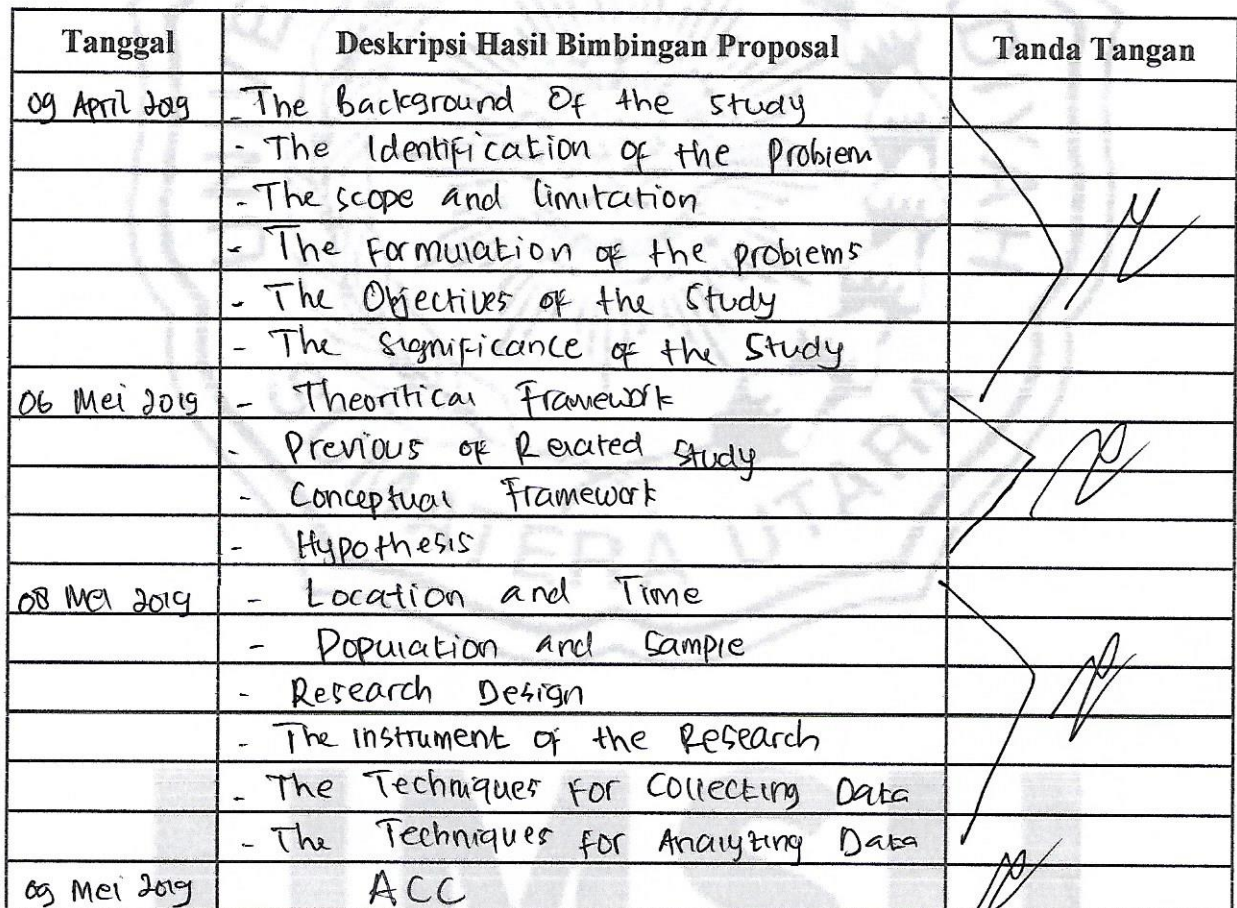 Tanggal Deskripsi Hasil Bimbingan Proposal Tanda Tangan
09 April 2019 - The Background Of the study
- The Identification of the Problem
- The scope and limitation
- The Formulation of the problems
- The Objectives of the Study
- The Significance of the Study
06 Mei 2019 - Theoritical Framework
- Previous of Related Study
- Conceptual Framework
- Hypothesis
08 Mei 2019 - Location and Time
- Population and Sample
- Research Design
- The instrument of the Research
- The Techniques For Collecting Data
- The Techniques for Analyzing Data
09 Mei 2019 ACC
ATERA UTARA
UMSU